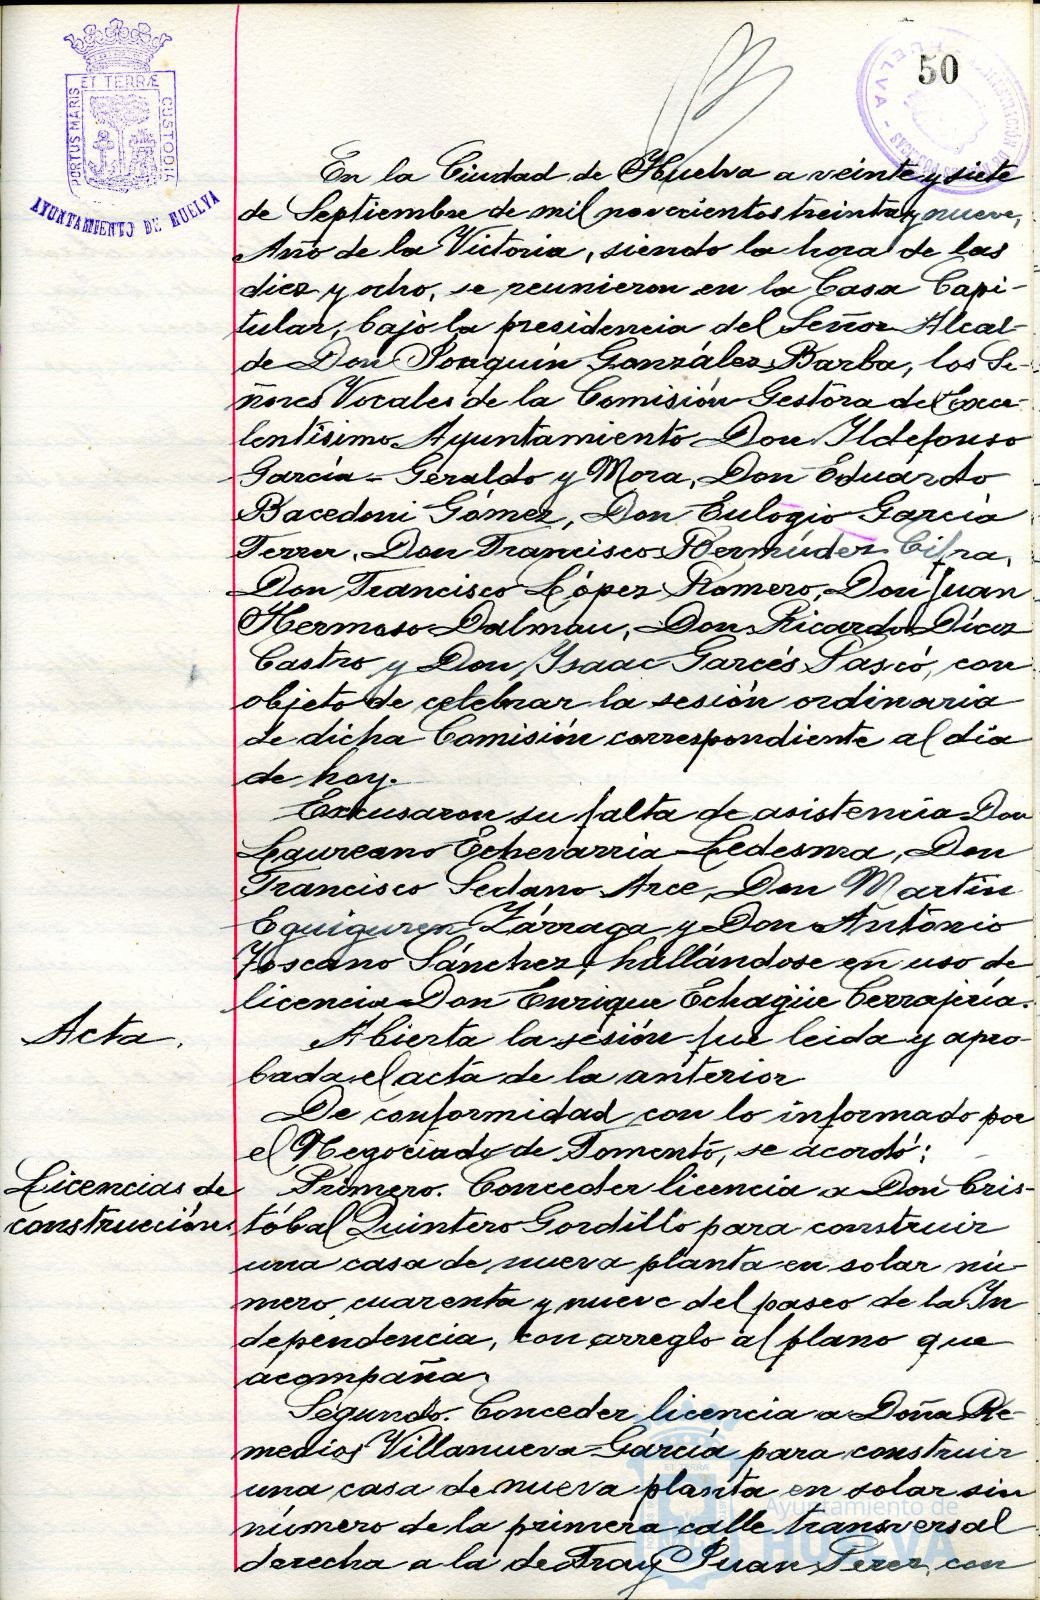 50
PORTUS MARIS ET TERRÆ CUSTODIA
AYUNTAMIENTO DE HUELVA
En la Ciudad de Huelva a veinte y siete
de Septiembre de mil novecientos treinta y nueve,
Año de la Victoria, siendo la hora de las
diez y ocho, se reunieron en la Casa Capi-
tular, bajo la presidencia del Señor Alcal-
de Don Joaquín González Barba, los Se-
ñores Vocales de la Comisión Gestora del Exce-
lentísimo Ayuntamiento Don Ildefonso
García-Geraldo y Mora, Don Eduardo
Bacedoni Gómez, Don Eulogio García
Ferrer, Don Francisco Bermúdez Cifra,
Don Francisco López Romero, Don Juan
Hermoso Dalmau, Don Ricardo Díez
Castro y Don Isaac Garcés Pasció, con
objeto de celebrar la sesión ordinaria
de dicha Comisión correspondiente al día
de hoy.
Excusaron su falta de asistencia Don
Laureano Echevarria Ledesma, Don
Francisco Sedano Arce, Don Martín
Eguiguren Zárraga y Don Antonio
Toscano Sánchez, hallándose en uso de
licencia Don Enrique Echagüe Cerrajería.
Acta.
Abierta la sesión fue leida y apro-
bada el acta de la anterior
De conformidad con lo informado por
el Negociado de Fomento, se acordó:
Licencias de
construcción.
Primero. Conceder licencia a Don Cris-
tóbal Quintero Gordillo para construir
una casa de nueva planta en solar nú-
mero cuarenta y nueve del paseo de la In
dependencia, con arreglo al plano que
acompaña.
Segundo. Conceder licencia a Doña Re-
medios Villanueva García para construir
una casa de nueva planta en solar sin
número de la primera calle transversal
derecha a la de Fray Juan Perez, con
Ayuntamiento de
HUELVA